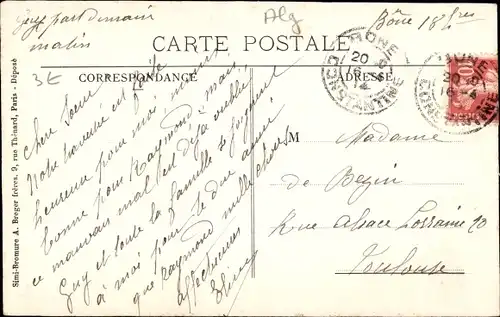 Alg
Bône 18 
Guy part demain
matin
CARTE POSTALE
CORRESPONDANCE
ADRESSE
3E
BÔNE
20
14
CONSTANTINE
BÔNE
CONSTANTINE
Chère Soeur
Notre traversée est
heureuse pour moi moins
bonne pour Raymond mais
ce mauvais mal est déjà oublié
Guy et toute la famille se joignent
à moi pour te dire ainsi
que Raymond mille choses
affectueuses
M Madame
de Bezin
Rue Alsace Lorraine 20
Toulouse
Simi-Bromure A. Breger frères, 9, rue Thénard, Paris - Déposé